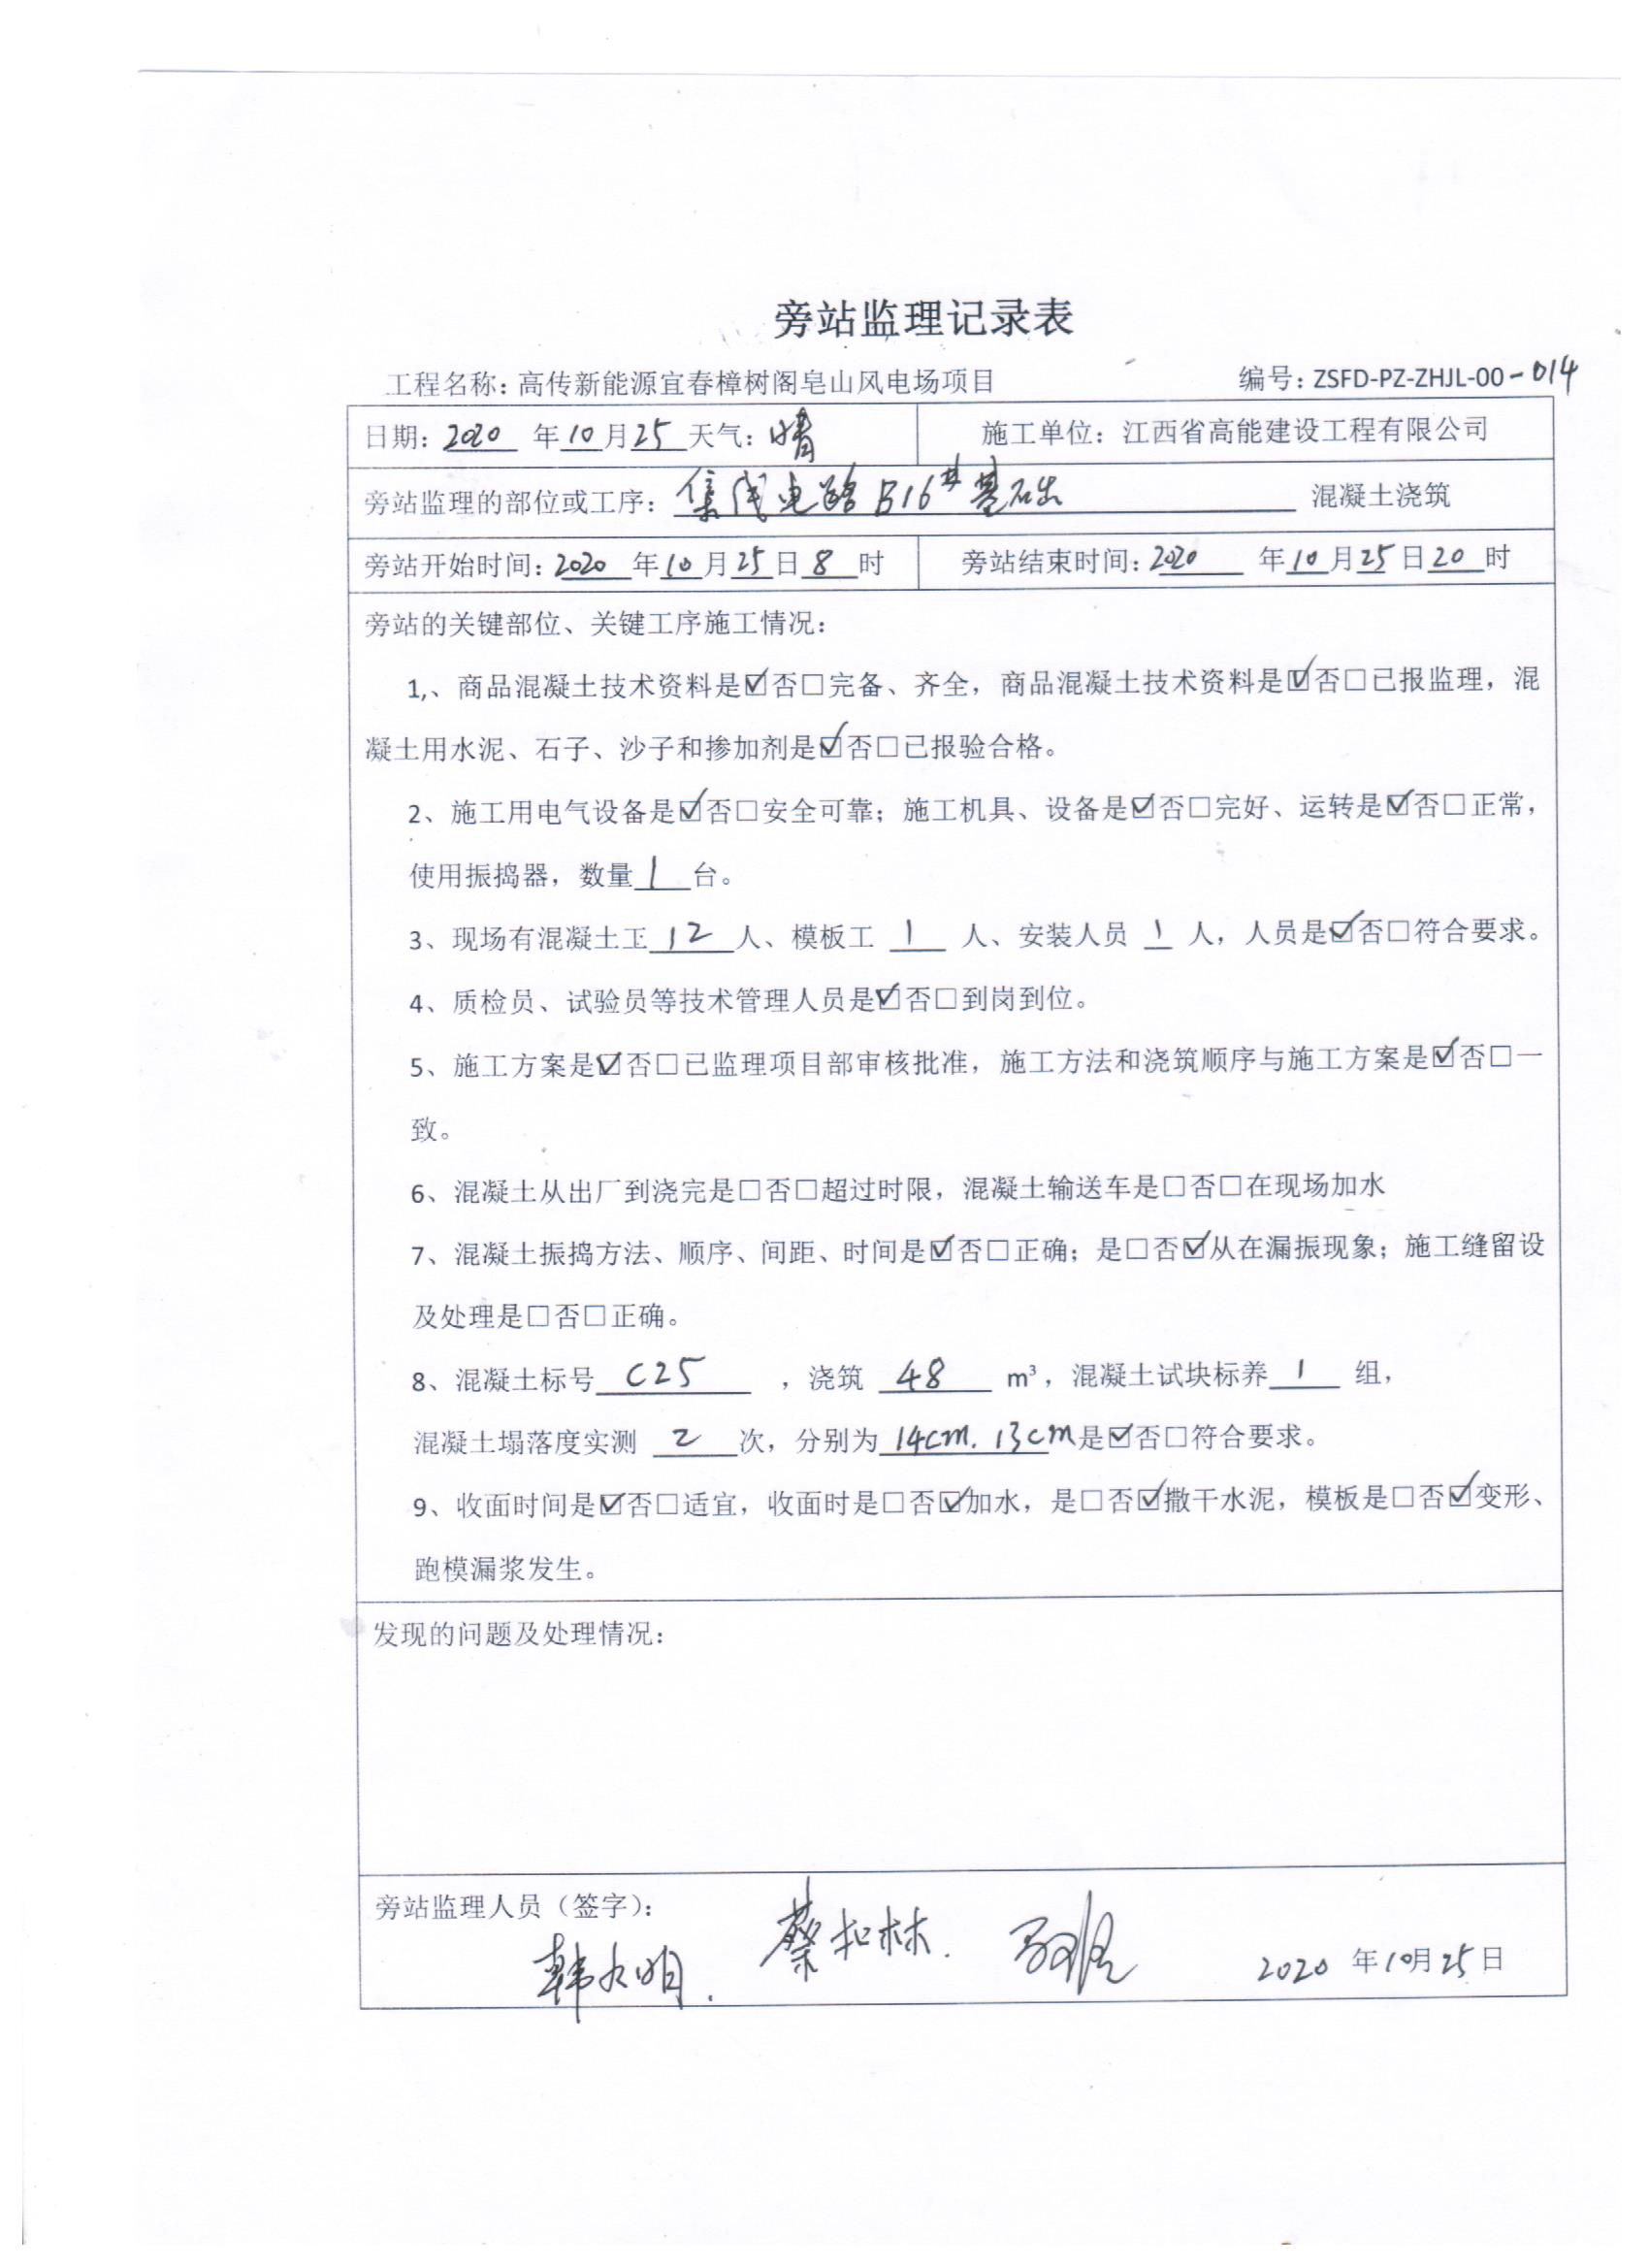 旁站监理记录表
工程名称：高传新能源宜春樟树阁皂山风电场项目 编号：ZSFD-PZ-ZHJL-00-014
日期：2020 年10月25 天气：晴 施工单位：江西省高能建设工程有限公司
旁站监理的部位或工序：集线电路B16#基础 混凝土浇筑
旁站开始时间：2020年10月25日8时 旁站结束时间：2020 年10月25日20时
旁站的关键部位、关键工序施工情况：
1,、商品混凝土技术资料是☑否□完备、齐全，商品混凝土技术资料是☑否□已报监理，混
凝土用水泥、石子、沙子和掺加剂是☑否□已报验合格。
2、施工用电气设备是☑否□安全可靠；施工机具、设备是☑否□完好、运转是☑否□正常，
使用振捣器，数量1台。
3、现场有混凝土工12人、模板工 1 人、安装人员 1 人，人员是☑否□符合要求。
4、质检员、试验员等技术管理人员是☑否□到岗到位。
5、施工方案是☑否□已监理项目部审核批准，施工方法和浇筑顺序与施工方案是☑否□一
致。
6、混凝土从出厂到浇完是□否□超过时限，混凝土输送车是□否□在现场加水
7、混凝土振捣方法、顺序、间距、时间是☑否□正确；是□否☑从在漏振现象；施工缝留设
及处理是□否□正确。
8、混凝土标号 C25 ，浇筑 48 m³，混凝土试块标养 1 组，
混凝土塌落度实测 2 次，分别为14cm. 13cm是☑否□符合要求。
9、收面时间是☑否□适宜，收面时是□否☑加水，是□否☑撒干水泥，模板是□否☑变形、
跑模漏浆发生。
发现的问题及处理情况：
旁站监理人员（签字）：
蔡和林.
2020 年10月25日